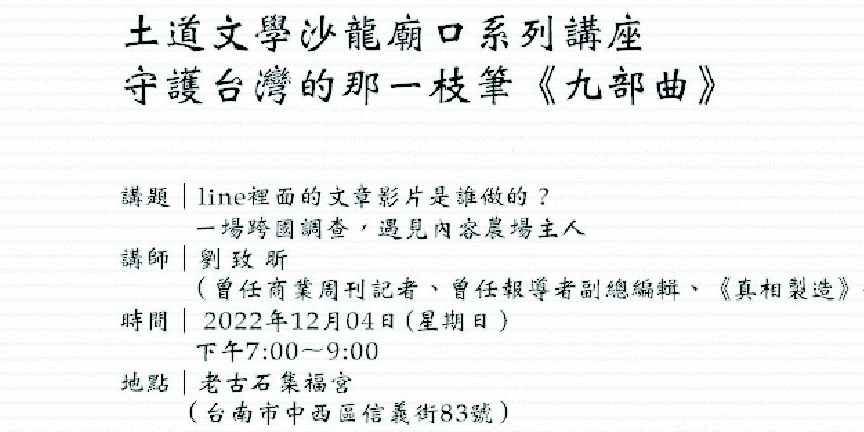 土道文學沙龍廟口系列講座
守護台灣的那一枝筆《九部曲》
講題│line裡面的文章影片是誰做的？
一場跨國調查，遇見內容農場主人
講師│劉致昕
(曾任商業周刊記者、曾任報導者副總編輯、《真相製造》
時間│2022年12月04日(星期日)
下午7:00～9:00
地點│老古石集福宮
(台南市中西區信義街83號)